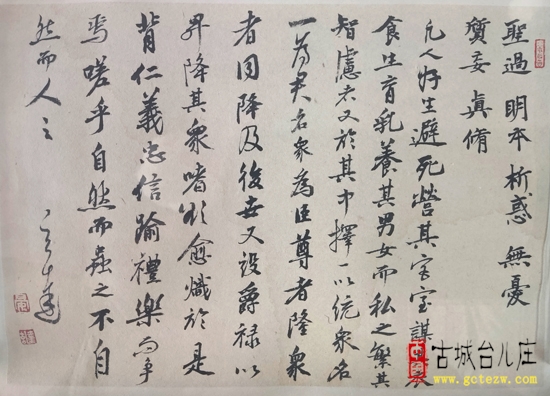 聖過 明本 析惑 無憂
質妄 真脩
凡人好生避死營其宮室謀其衣
食生育乳養其男女而私之繁其
智慮者又於其中擇一以統衆名
一為君名衆為臣尊者隆衆
者同降及後世又設爵祿以
昇降其衆嗜欲愈熾於是
背仁義忠信踰禮樂而爭
焉嗟乎自然而蟲之不自
然而人之
古城台儿庄
www.gctezw.com